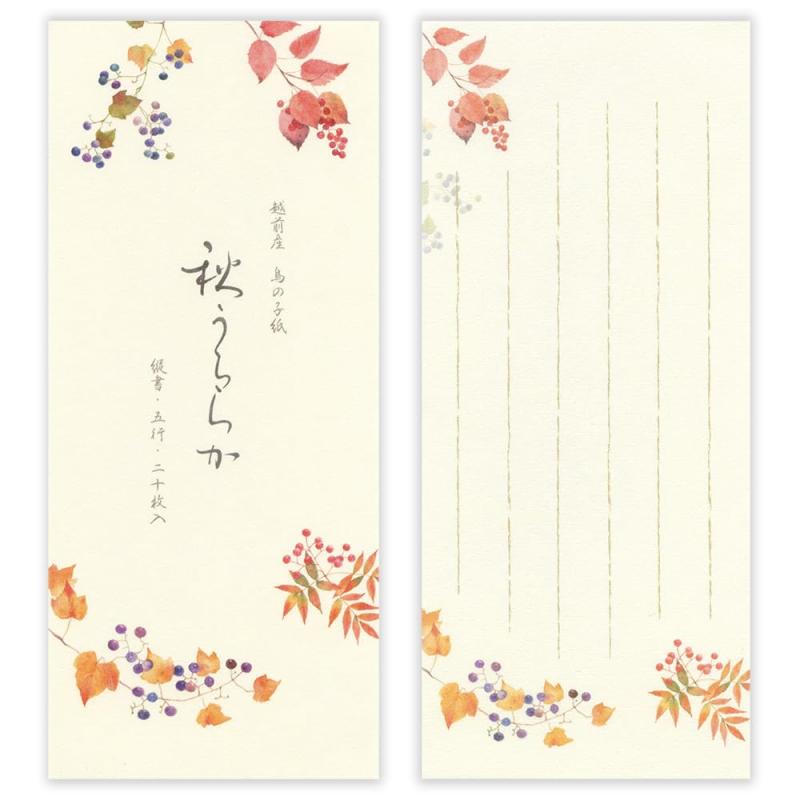 越前産　鳥の子紙
秋うららか
縦書・五行・二十枚入